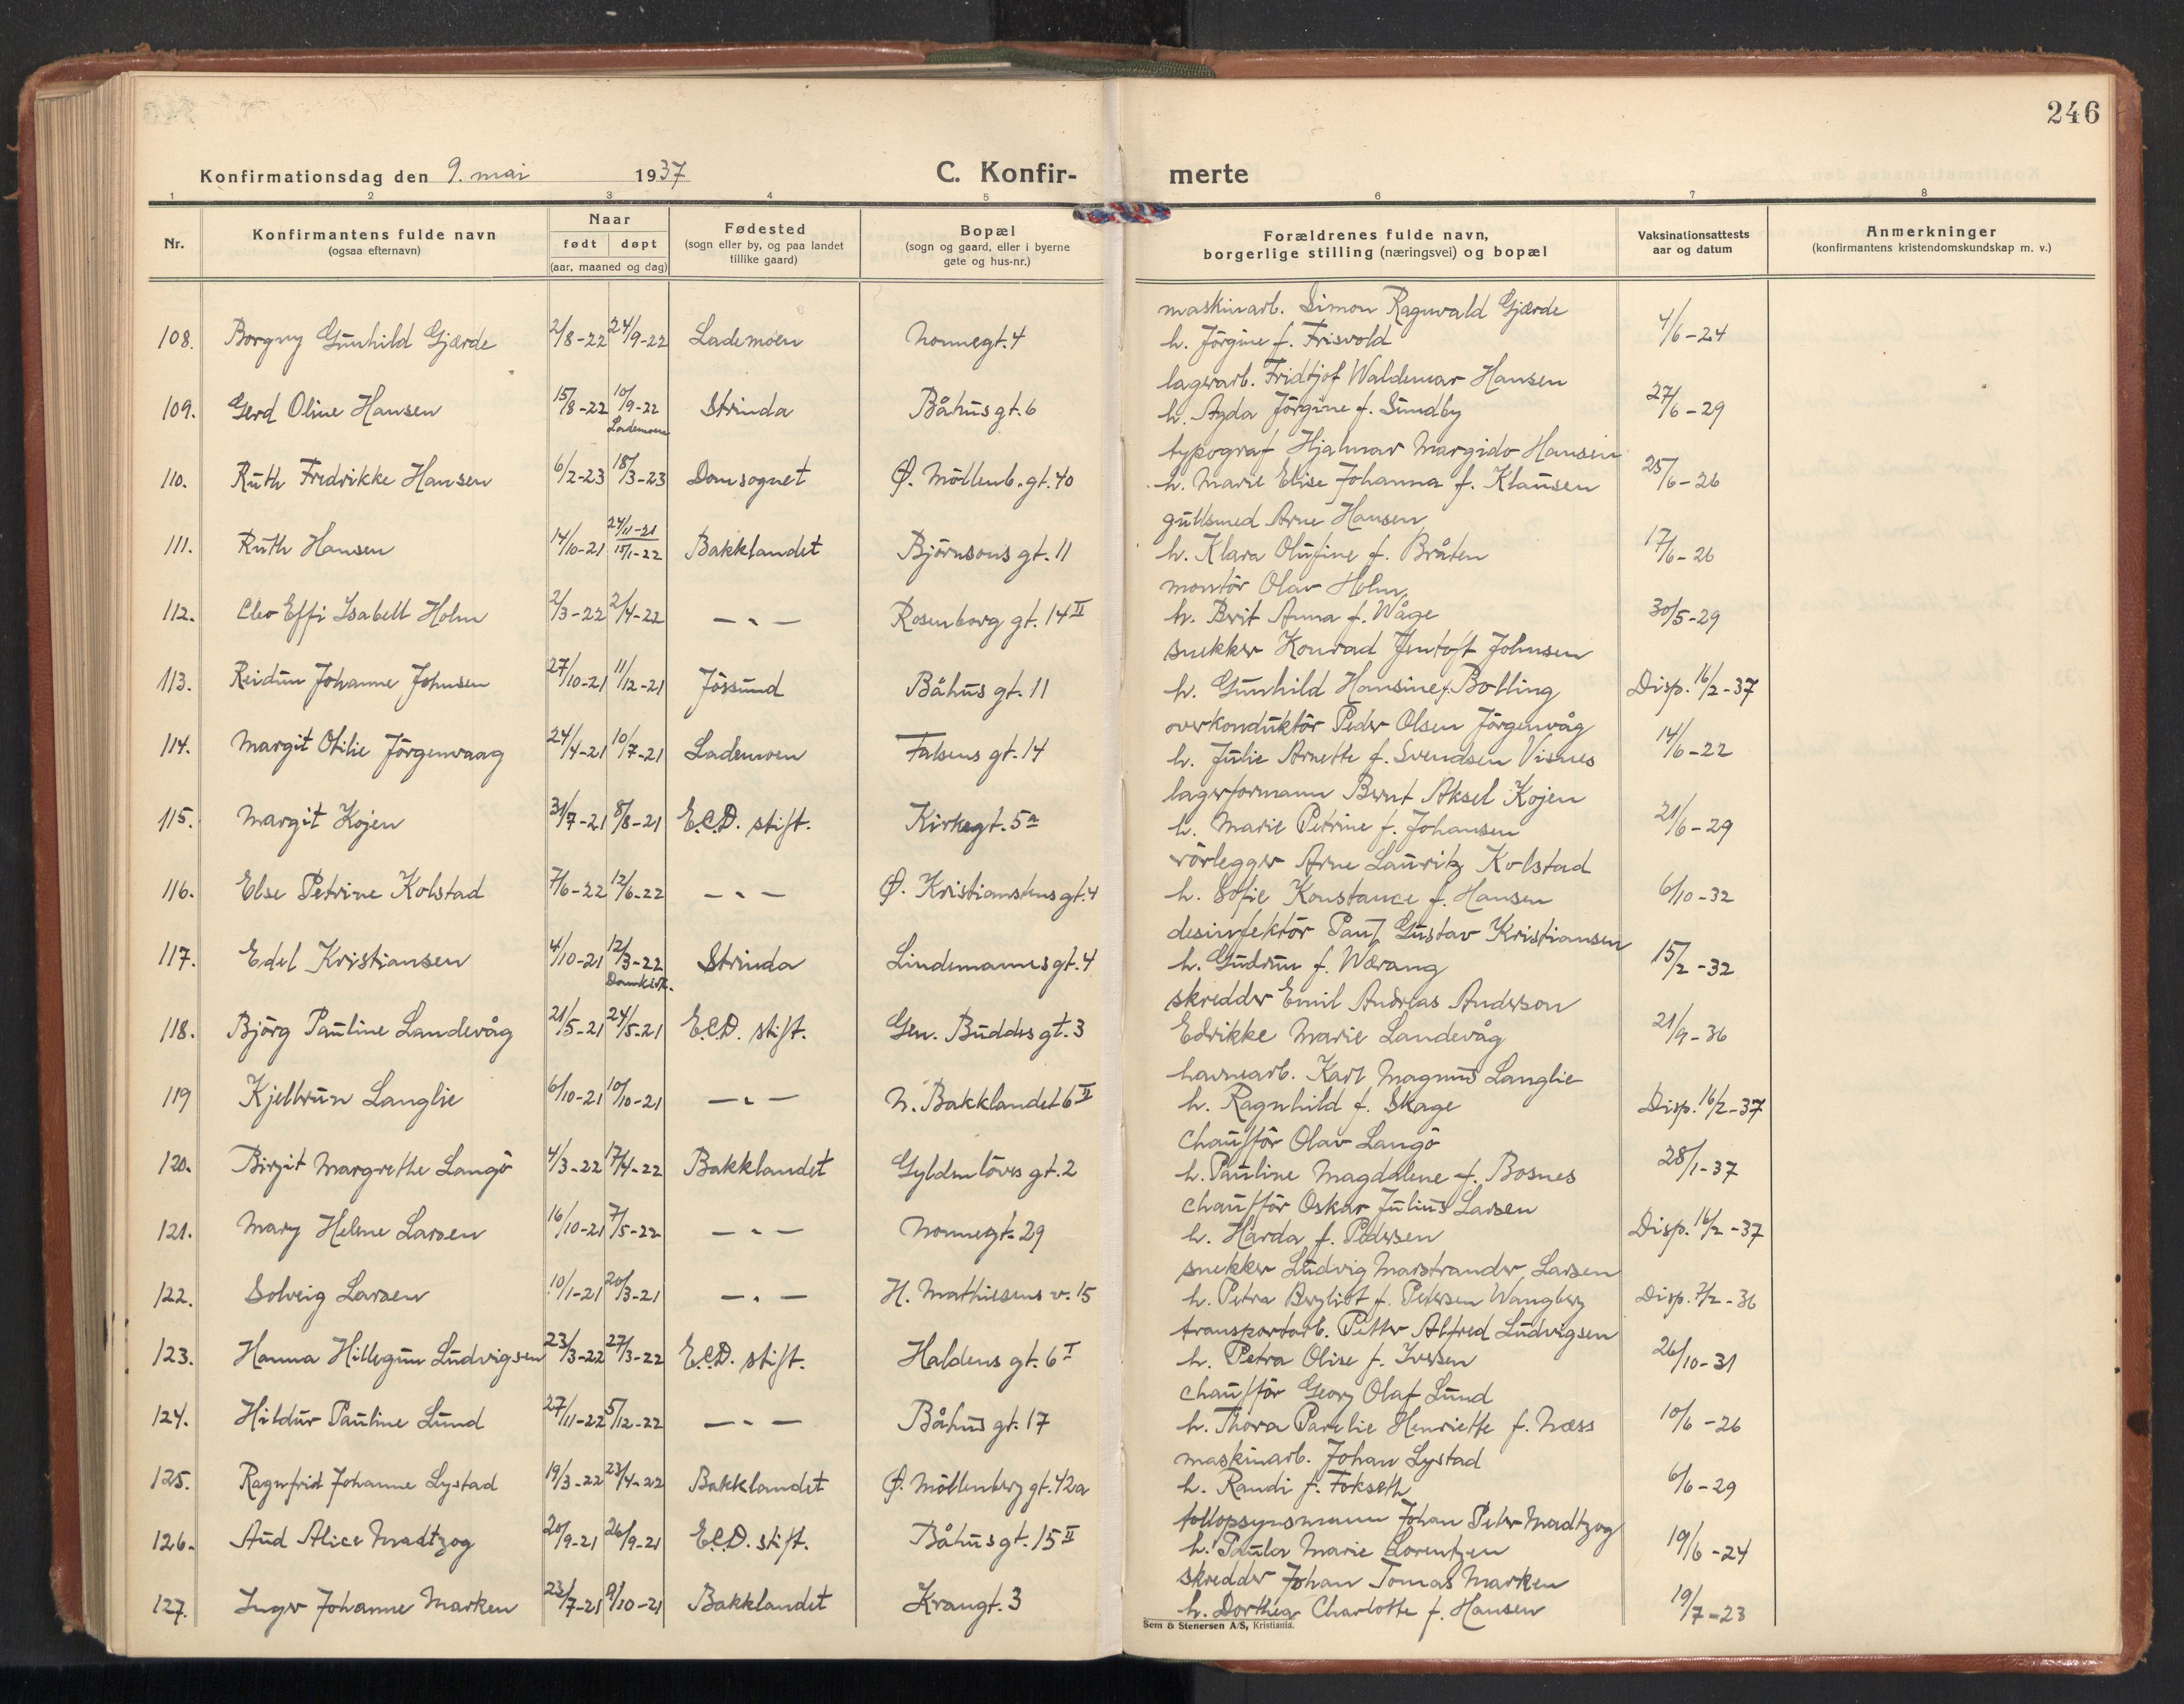 246
Konfirmationsdag den 9. mai 1937 C. Konfir- merte
1 2 3 4 5 6 7 8
Nr. Konfirmantens fulde navn (ogsaa efternavn) Naar født døpt (aar, maaned og dag) Fødested (sogn eller by, og paa landet tillike gaard) Bopæl (sogn og gaard, eller i byerne gate og hus-nr.) Forældrenes fulde navn, borgerlige stilling (næringsvei) og bopæl Vaksinationsattests aar og datum Anmerkninger (konfirmantens kristendomskundskap m. v.)
maskinarb. Simon Ragnvald Gjærde
108. Borgny Gunhild Gjærde 2/8-22 24/9-22 Lademoen Nonnegt. 4 h. Jörgine f. Frisvold 4/6-24
lagerarb. Fridtjof Waldemar Hansen
109. Gerd Oline Hansen 15/8-22 10/9-22 Lademoen Strinda Båhusgt. 6 h. Agda Jörgine f. Sundby 27/6-29
typograf Hjalmar Margido Hansen
110. Ruth Fredrikke Hansen 6/2-23 18/3-23 Domsognet Ø. Möllenb. gt. 40 h. Marie Elise Johanna f. Klausen 25/6-26
gullsmed Arne Hansen
111. Ruth Hansen 14/10-21 24/11-21 15/1-22 Bakklandet Björnsons gt. 11 h. Klara Olufine f. Bråten 17/6-26
montör Olav Holm
112. Cleo Effi Isabell Holm 2/3-22 2/4-22 — " — Rosenborg gt. 14 II h. Berit Anna f. Wåge 30/5-29
snekker Konrad Jentoft Johnsen
113. Reidun Johanne Johnsen 27/10-21 11/12-21 Jössund Båhus gt. 11 h. Gunhild Hansine f. Bolling Disp. 16/2-37
overkonduktör Peder Olsen Jörgenvåg
114. Margit Otilie Jörgenvaag 24/4-21 10/7-21 Lademoen Falsens gt. 14 h. Julie Arnette f. Svendsen Visnes 14/6-22
lagerformann Bernt Aksel Kojen
115. Margit Kojen 31/7-21 8/8-21 E.C.D. stift. Kirkegt. 5a h. Marie Petrine f. Johansen 21/6-29
rörlegger Arne Lauritz Kolstad
116. Else Petrine Kolstad 7/6-22 12/6-22 — " — Ø. Kristianstensgt. 4 h. Sofie Konstance f. Hansen 6/10-32
desinfektör Paul Gustav Kristiansen
117. Edel Kristiansen 4/10-21 12/3-22 Domkirk. Strinda Lindemannsgt. 4 h. Gudrun f. Wærang 15/2-32
skredder Emil Andreas Anderson
118. Björg Pauline Landevåg 21/5-21 24/5-21 E.C.D. stift. Gen. Buddes gt. 3 Edrikke Marie Landevåg 21/9-36
havnearb. Karl Magnus Langlie
119 Kjellrun Langlie 6/10-21 10/10-21 — " — N. Bakklandet 6 II h. Ragnhild f. Skage Disp. 16/2-37
chaufför Olav Langö
120. Birgit Margrethe Langö 4/3-22 17/4-22 Bakklandet Gyldenlöves gt. 2 h. Pauline Magdalene f. Bosnes 28/1-37
chaufför Oskar Julius Larsen
121. Mary Helene Larsen 16/10-21 7/5-22 — " — Nonnegt. 29 h. Harda f. Pedersen Disp. 16/2-37
snekker Ludvig Marstrander Larsen
122. Solveig Larsen 10/1-21 20/3-21 — " — H. Mathiesens v. 15 h. Petra Bergliot f. Petersen Wangberg Disp. 7/2-36
transportarb. Petter Alfred Ludvigsen
123. Hanna Hillegun Ludvigsen 23/3-22 27/3-22 E.C.D. stift. Haldens gt. 6 I h. Petra Olise f. Iversen 26/10-31
chaufför Georg Olaf Lund
124. Hildur Pauline Lund 27/11-22 5/12-22 — " — Båhus gt. 17 h. Thora Parelie Henriette f. Næss 10/6-26
maskinarb. Johan Lystad
125. Ragnfrid Johanne Lystad 19/3-22 23/4-22 Bakklandet Ø. Möllenberg gt. 42a h. Randi f. Forkseth 6/6-29
tollopsynsmann Johan Peter Madtzog
126. Aud Alice Madtzog 20/9-21 26/9-21 E.C.D. stift. Båhusgt. 15 II h. Paula Marie Lorentzen 19/6-24
skredder Johan Tomas Marken
127. Inger Johanne Marken 23/7-21 9/10-21 Bakklandet Krangt. 3 h. Dorthea Charlotte f. Hansen 19/7-23
Sem & Stenersen A/S, Kristiania.